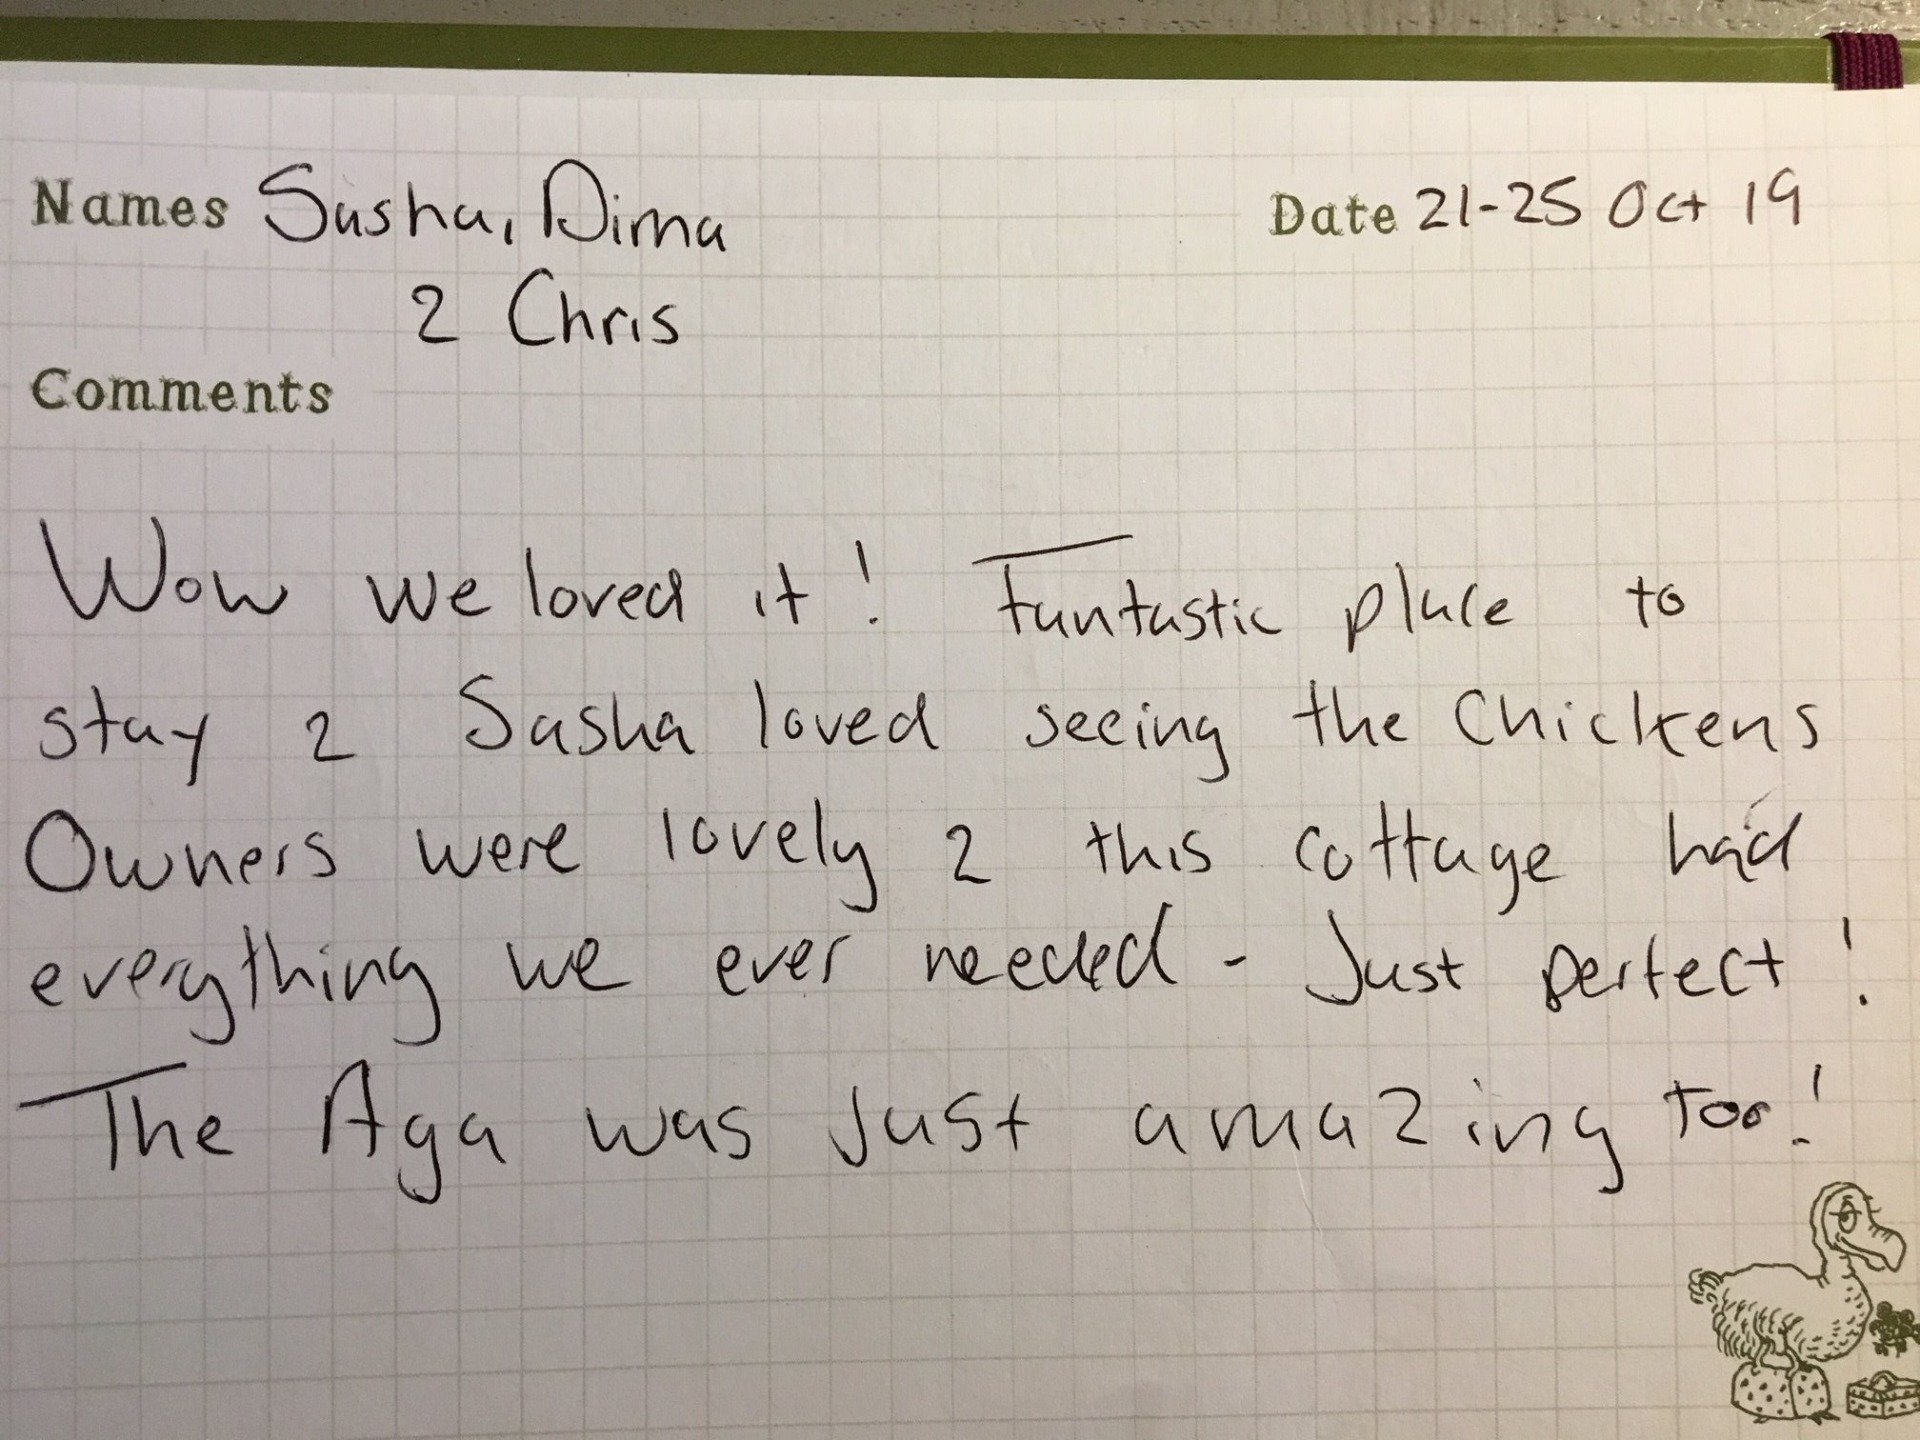 Names Sasha, Dima
2 Chris
Date 21-25 Oct 19
Comments
Wow we loved it! Fantastic place to
stay 2 Sasha loved seeing the Chickens
Owners were lovely 2 this cottage had
everything we ever needed - Just perfect!
The Aga was just amazing too!